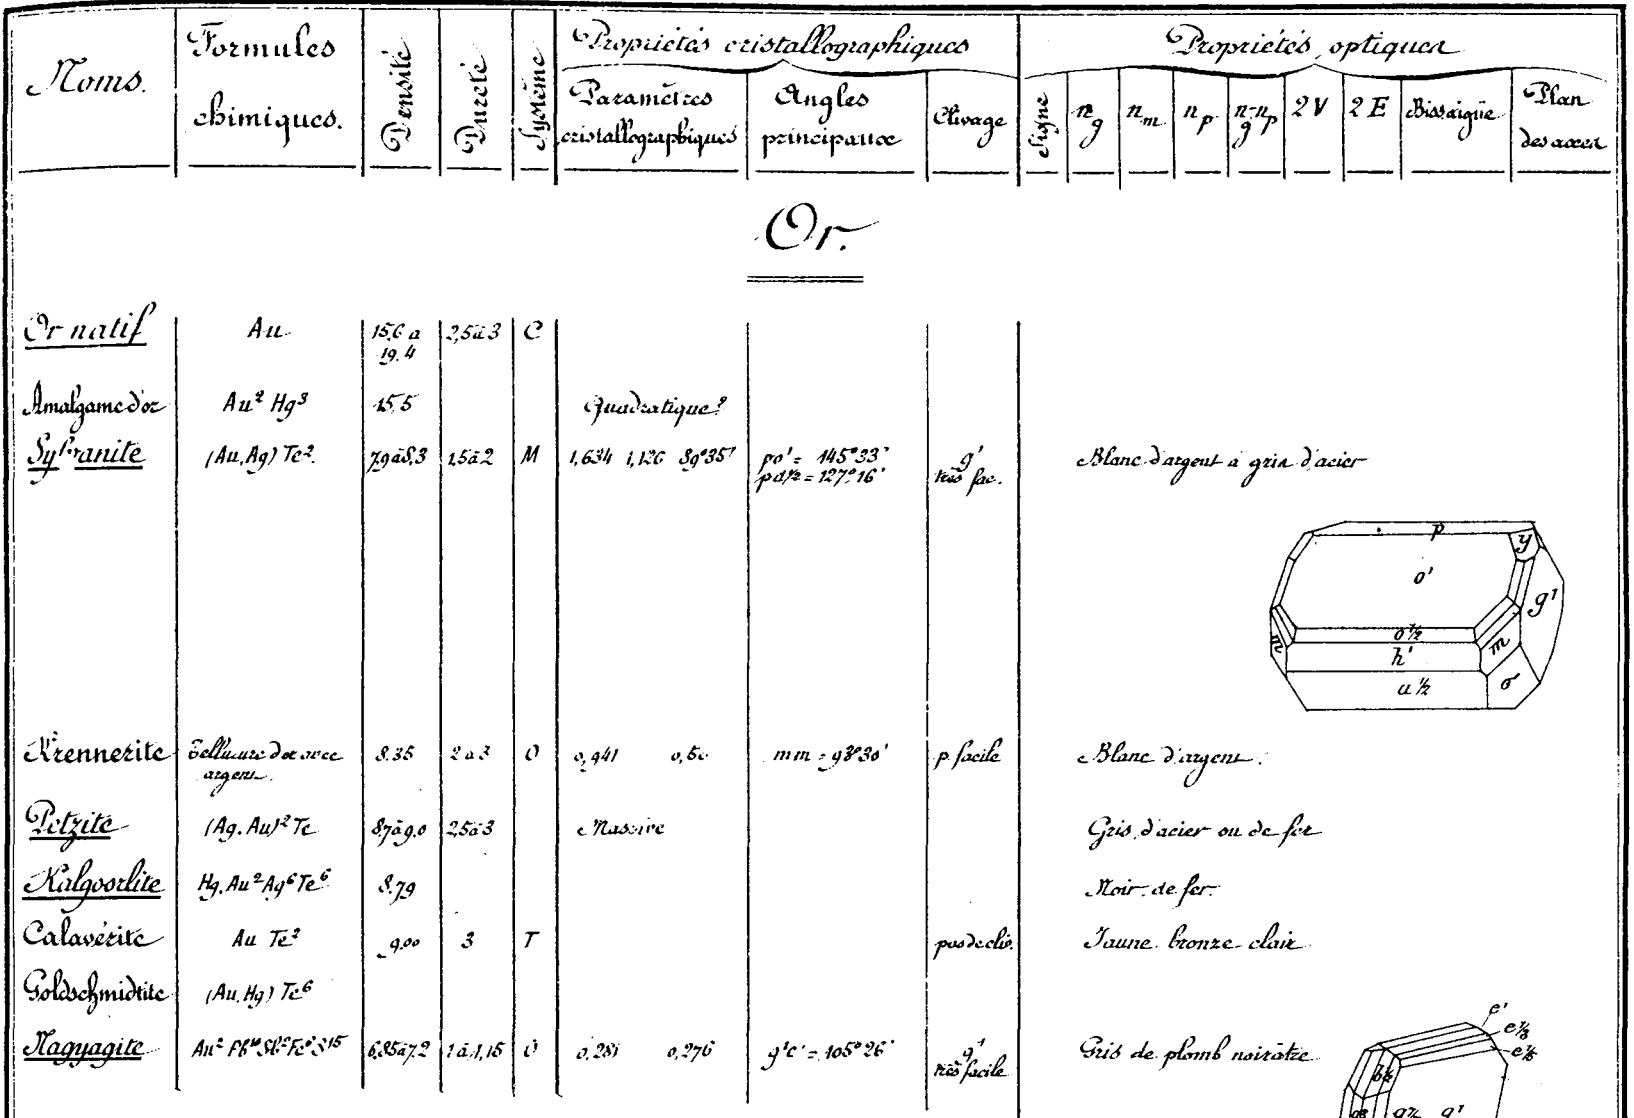 Noms.
Formules chimiques.
Densité
Dureté
Système
Propriétés cristallographiques
Paramètres cristallographiques
Angles principaux
Clivage
Propriétés optiques
Signe
n g
n m
n p
n g - n p
2 V
2 E
Biss. aigüe
Plan des axes
Or.
Or natif Au 15,6 à 19.4 2,5 à 3 C
Amalgame d'or Au² Hg³ 15,5 Quadratique?
Sylvanite (Au, Ag) Te². 7,9 à 8,3 1,5 à 2 M 1,634 1,126 89°35' po' = 145°33' g' très fac. Blanc d'argent à gris d'acier
pd½ = 127°16'
p
y
o'
g'
o½
m
m
h'
a½
σ
Krennerite Tellurure d'or avec argent. 8.35 2 à 3 O 0,941 0,50 mm = 93°30' p. facile Blanc d'argent.
Petzite (Ag. Au)² Te 8,7 à 9,0 2,5 à 3 Massive Gris d'acier ou de fer
Kalgoorlite Hg. Au² Ag⁶ Te⁶ 8.79 Noir de fer.
Calavérite Au Te² 9,00 3 T pas de cliv. Jaune bronze clair
Goldschmidtite (Au, Hg) Te⁶
Nagyagite 6,85 à 7.2 O 0,281 0,276 g'e' = 105°26' g' très facile Gris de plomb noirâtre
e'
b½
g'